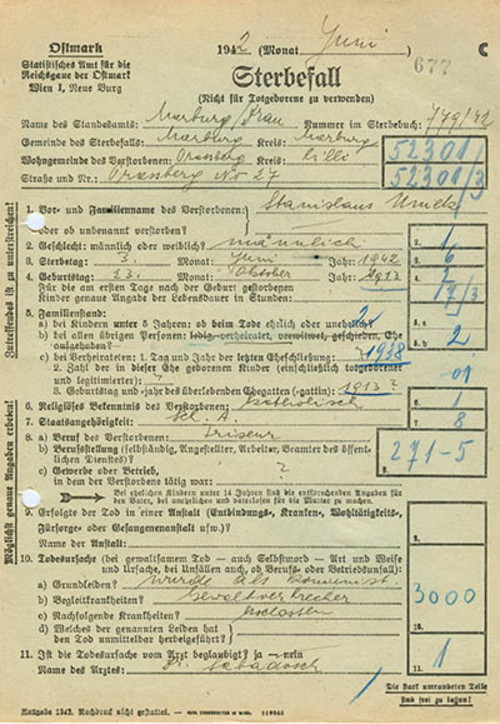 Ostmark
1942 (Monat Juni)
C
677
Statistisches Amt für die
Reichsgaue der Ostmark
Wien I, Neue Burg
Sterbefall
(Nicht für Totgeborene zu verwenden)
Name des Standesamts: Marburg/Drau Nummer im Sterbebuch: 779/42
Gemeinde des Sterbefalls: Marburg Kreis: Marburg
52301
Wohngemeinde des Verstorbenen: Prassberg Kreis: Cilli
52301/3
Straße und Nr.: Prassberg No 27
Zutreffendes ist zu unterstreichen!
Möglichst genaue Angaben erbeten!
1. Vor- und Familienname des Verstorbenen: Stanislaus
oder ob unbenannt verstorben?
2. Geschlecht: männlich oder weiblich? männlich
2. 1
3. Sterbetag: 3. Monat: Juni Jahr: 1942
3. 6
4. Geburtstag: 23. Monat: Oktober Jahr: 1913
4.
Für die am ersten Tage nach der Geburt gestorbenen
Kinder genaue Angabe der Lebensdauer in Stunden:
17/3
5. Familienstand:
a) bei Kindern unter 5 Jahren: ob beim Tode ehelich oder unehelich?
5. a
b) bei allen übrigen Personen: ledig, verheiratet, verwitwet, geschieden, Ehe
aufgehoben?
5. b 2
c) bei Verheirateten: 1. Tag und Jahr der letzten Eheschließung: ? 1938
2. Zahl der in dieser Ehe geborenen Kinder (einschließlich totgeborener
und legitimierter): ?
01
3. Geburtstag und -jahr des überlebenden Ehegatten (-gattin): 1913 ?
6. Religiöses Bekenntnis des Verstorbenen: katholisch
6. 1
7. Staatsangehörigkeit:
7. 8
8. a) Beruf des Verstorbenen: Friseur
8. 271-5
b) Berufsstellung (selbständig, Angestellter, Arbeiter, Beamter des öffent-
lichen Dienstes)?
c) Gewerbe oder Betrieb,
in dem der Verstorbene tätig war: ?
Bei ehelichen Kindern unter 14 Jahren sind die entsprechenden Angaben für
den Vater, bei unehelichen und vaterlosen für die Mutter zu machen.
9. Erfolgte der Tod in einer Anstalt (Entbindungs-, Kranken-, Wohltätigkeits-,
Fürsorge- oder Gefangenenanstalt usw.)?
Name der Anstalt:
9.
10. Todesursache (bei gewaltsamem Tod — auch Selbstmord — Art und Weise
und Ursache, bei Unfällen auch, ob Berufs- oder Betriebsunfall):
a) Grundleiden? wurde als Kommunist.
b) Begleitkrankheiten? Gewaltverbrecher
10. 3000
c) Nachfolgende Krankheiten? erschossen
d) Welches der genannten Leiden hat
den Tod unmittelbar herbeigeführt?
11. Ist die Todesursache vom Arzt beglaubigt? ja — nein
Name des Arztes: Dr.
11. 1
Die stark umrandeten Teile
sind frei zu lassen!
Ausgabe 1942. Nachdruck nicht gestattet.